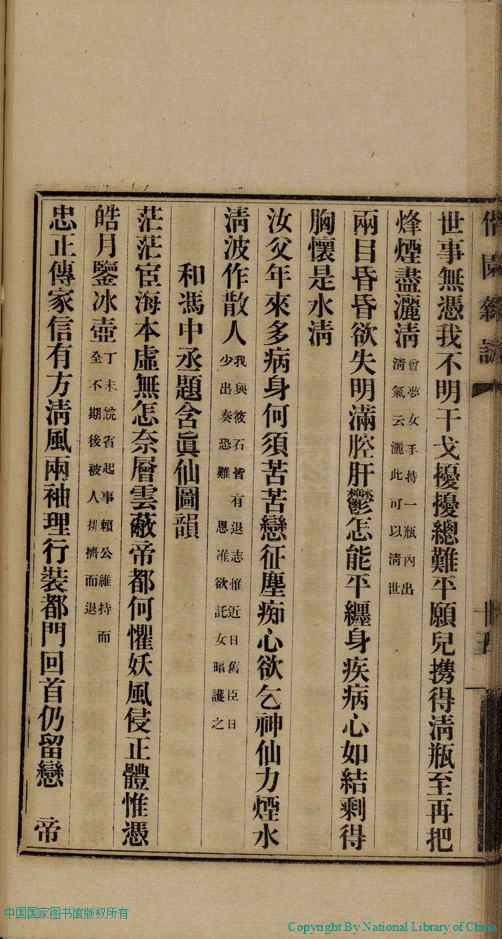 園
十五
世事無憑我不明干戈擾擾總難平願兒携得清瓶至再把
烽煙盡灑清
曾夢女手持一瓶內出
清氣云灑此可以清世
兩目昏昏欲失明滿腔肝鬱怎能平纏身疾病心如結剩得
胸懷是水清
汝父年來多病身何須苦苦戀征塵痴心欲乞神仙力煙水
清波作散人
我與筱石皆有退志惟近日舊臣日
少出奏恐難 恩准欲託女暗護之
和馮中丞題含眞仙圖韻
茫茫宦海本虛無怎奈層雲蔽帝都何懼妖風侵正體惟憑
皓月鑒冰壺
丁未皖省起事賴公維持而
全不期後被人排擠而退
忠正傳家信有方清風兩袖理行裝都門回首仍留戀 帝
中国国家图书馆版权所有
Copyright By National Library of China